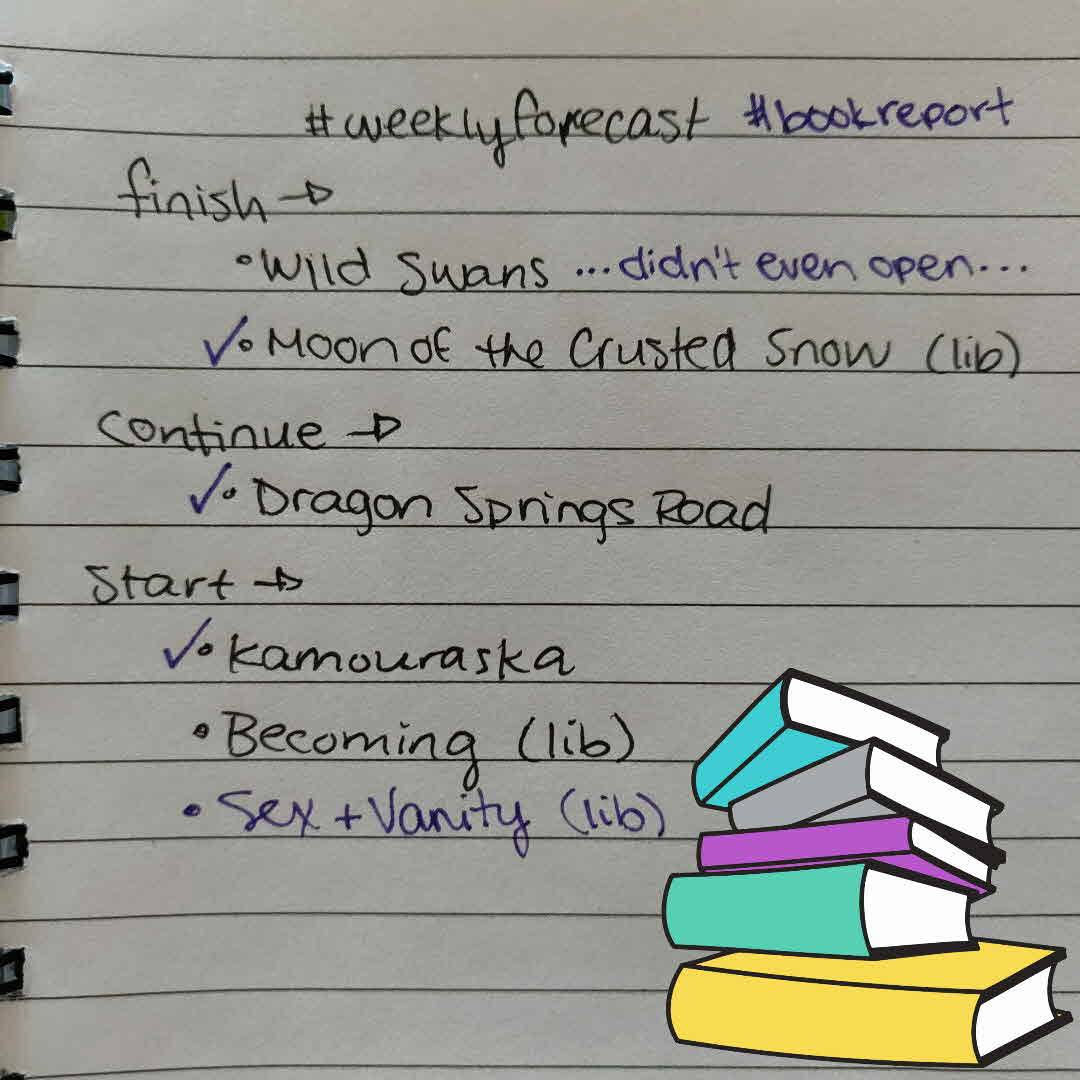 #weeklyforecast #bookreport
finish →
• Wild Swans ...didn't even open...
✓• Moon of the Crusted Snow (lib)
Continue →
✓• Dragon Springs Road
Start →
✓• Kamouraska
• Becoming (lib)
• Sex + Vanity (lib)